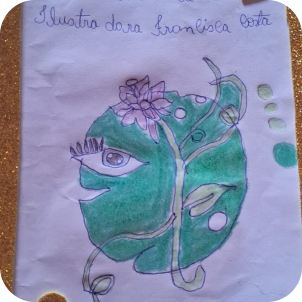 Ilustra dara Francisca Costa